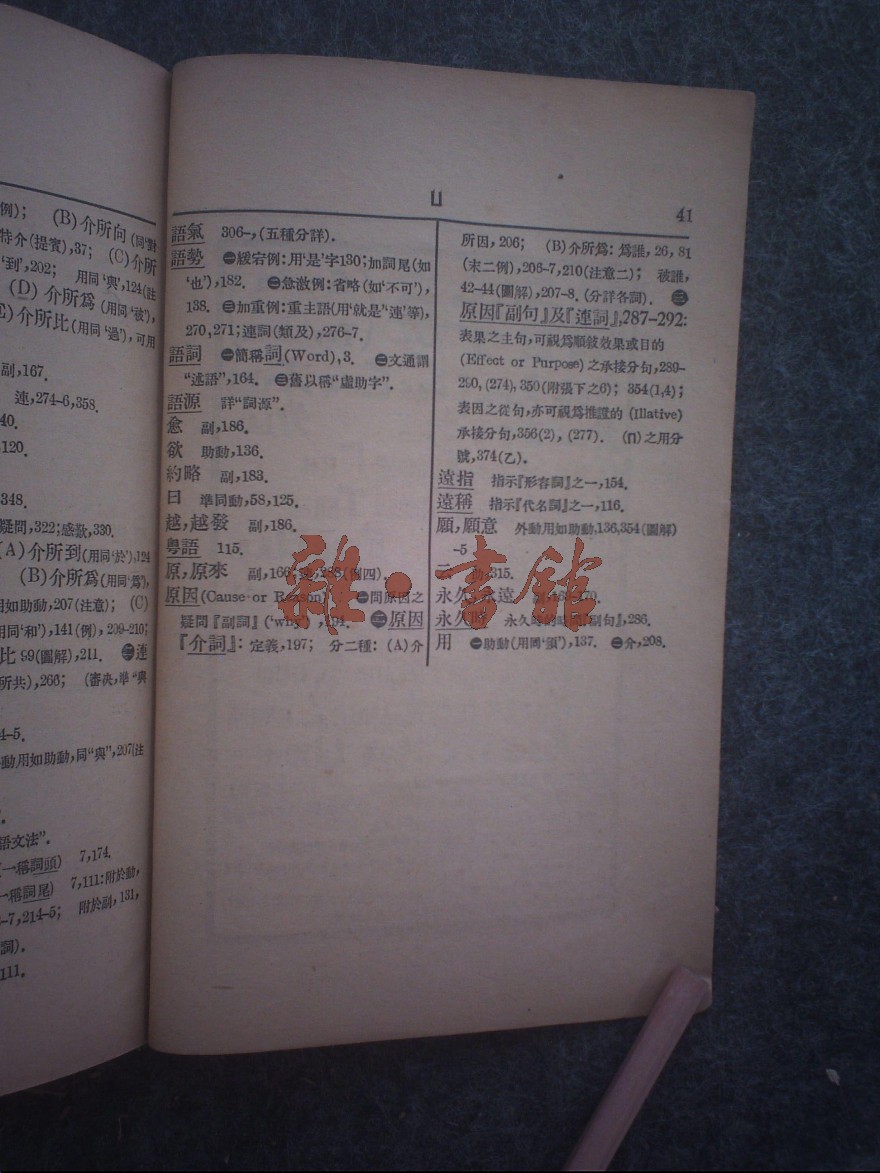 例); (B)介所向(同‘對
特介(提賓),37; (C)介所
‘到’,202; 用同‘與’,124(註
(D)介所爲(用同‘被’),
E)介所比(用同‘過’),可用
副,167.
連,274-6,358.
40.
120.
348.
疑問,322;感歎,330.
(A)介所到(用同‘於’),124
(B)介所爲(用同‘爲’),
用如助動,207(注意); (C)
用同‘和’),141(例),209-210;
比 99(圖解),211. ㊁連
所共),266; (審决,準“與
4-5.
動用如助動,同“與”,207(注
語文法”.
(一稱詞頭) 7,174.
一稱詞尾) 7,111:附於動,
-7,214-5; 附於副,131,
詞).
111.
ㄩ
41
語氣 306-,(五種分詳).
語勢 ㊀緩宕例:用‘是’字130;加詞尾(如
‘也’),182. ㊁急激例:省略(如‘不可’),
138. ㊂加重例:重主語(用‘就是’‘連’等),
270,271;連詞(類及),276-7.
語詞 ㊀簡稱詞(Word),3. ㊁文通謂
“述語”,164. ㊂舊以稱“虛助字”.
語源 詳“詞源”.
愈 副,186.
欲 助動,136.
約略 副,183.
曰 準同動,58,125.
越,越發 副,186.
粤語 115.
原,原來 副,166;連,288(例四).
原因(Cause or Reason) ㊀問原因之
疑問『副詞』(‘why’),204. ㊁原因
『介詞』: 定義,197; 分二種: (A)介
所因,206; (B)介所爲: 爲誰,26,81
(末二例),206-7,210(注意二); 被誰,
42-44(圖解),207-8.(分詳各詞). ㊂
原因『副句』及『連詞』,287-292:
表果之主句,可視爲順敘效果或目的
(Effect or Purpose)之承接分句,289-
290,(274),350(附張下之6); 354(1,4);
表因之從句,亦可視爲推證的(Illative)
承接分句,356(2),(277). (Π)之用分
號,374(乙).
遠指 指示『形容詞』之一,154.
遠稱 指示『代名詞』之一,116.
願,願意 外動用如助動,136,354(圖解)
-5
云 助,315.
永久,永遠 副,169-170.
永久時 永久時的時間『副句』,286.
用 ㊀助動(用同‘須’),137. ㊁介,208.
雜·書館